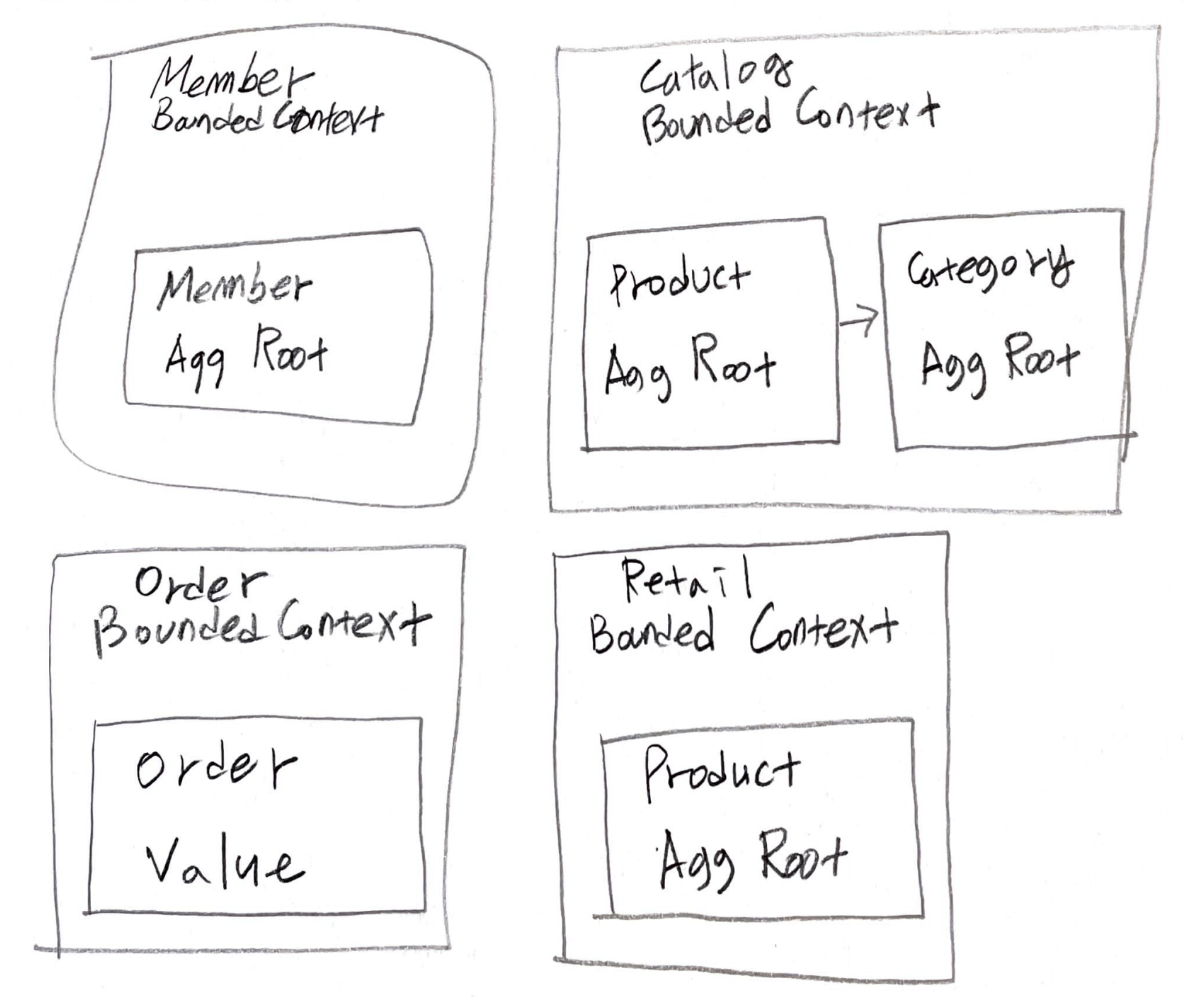 Member
Bounded Context
Member
Agg Root
Catalog
Bounded Context
Product
Agg Root
Category
Agg Root
Order
Bounded Context
Order
Value
Retail
Bounded Context
Product
Agg Root